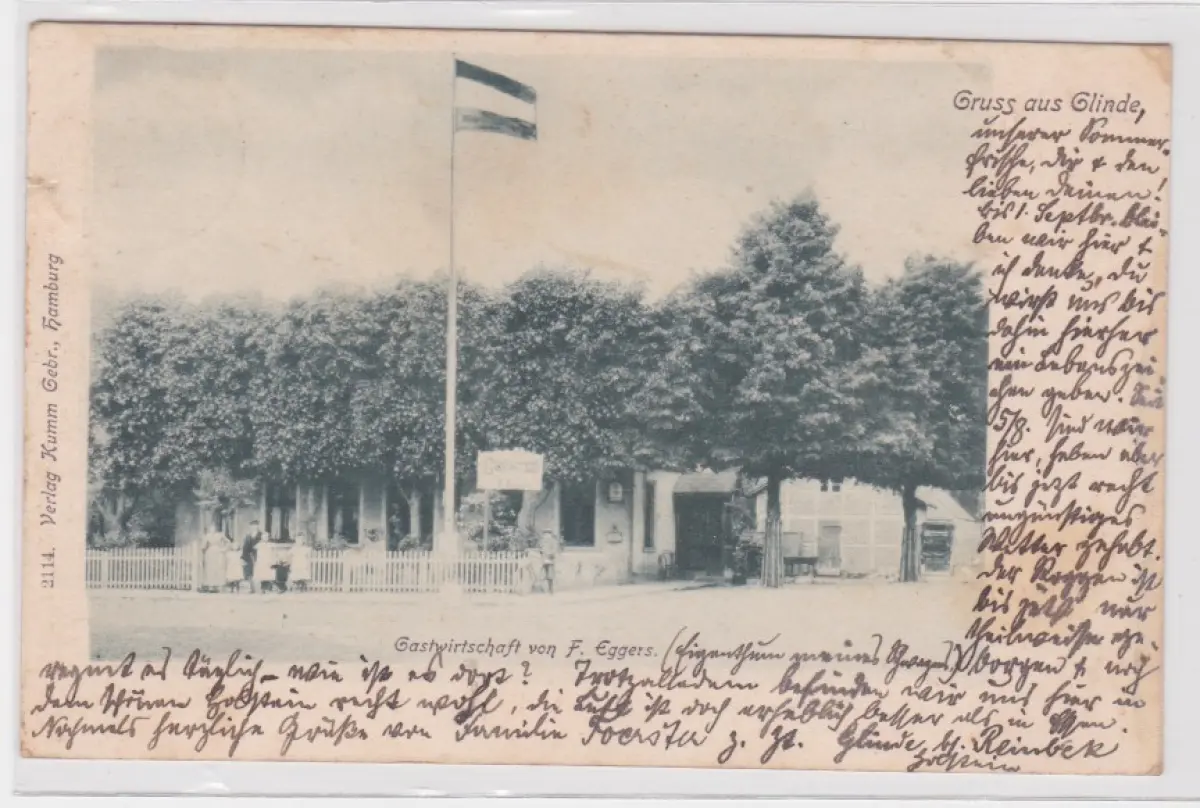 Gruss aus Glinde,
unserer Sommer-
frische, Dir & den
lieben Deinen!
bis 1. Septbr. blei-
ben wir hier &
ich denke, Du
wirst uns bis
dahin hierher
ein Lebenszei-
chen geben. Seit
5/8. sind wir
hier, haben aber
bis jetzt recht
ungünstiges
Wetter gehabt.
Der Roggen ist
bis jetzt nur
theilweise ge-
borgen & noch
regnet es täglich – wie ist es dort? Trotzalledem befinden wir uns hier in
dem schönen Holstein recht wohl, die Luft ist doch erheblich besser als in Essen.
Nochmals herzliche Grüße von Familie Foerster z. Zt. Glinde, bs. Reinbek
Holstein
Gastwirtschaft von F. Eggers. (Eigenthum meines Schwagers)
2114. Verlag Kumm Gebr., Hamburg